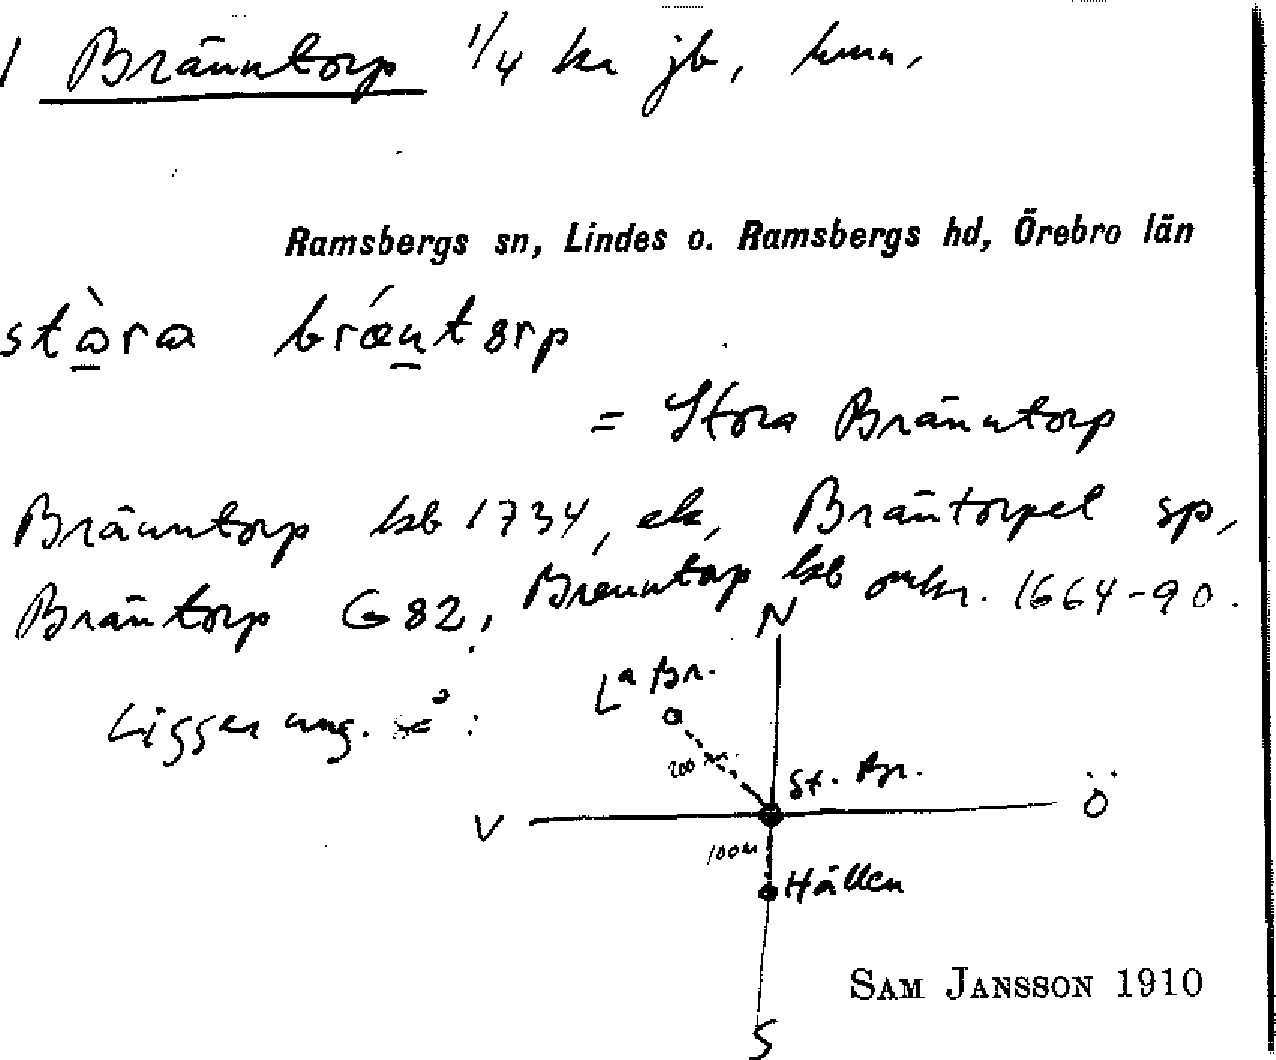 1 Bränntorp 1/4 kr jb, hmn,
Ramsbergs sn, Lindes o. Ramsbergs hd, Örebro län
stòra brǽntorp
= Stora Bränntorp
Bränntorp kb 1734, ek, Bräntorpet sp,
Bräntorp G 82, Brenntorp kb omkr. 1664-90.
Ligger ung. så:
N
La Br.
200
St. Br.
V
Ö
100m
Hällen
S
SAM JANSSON 1910